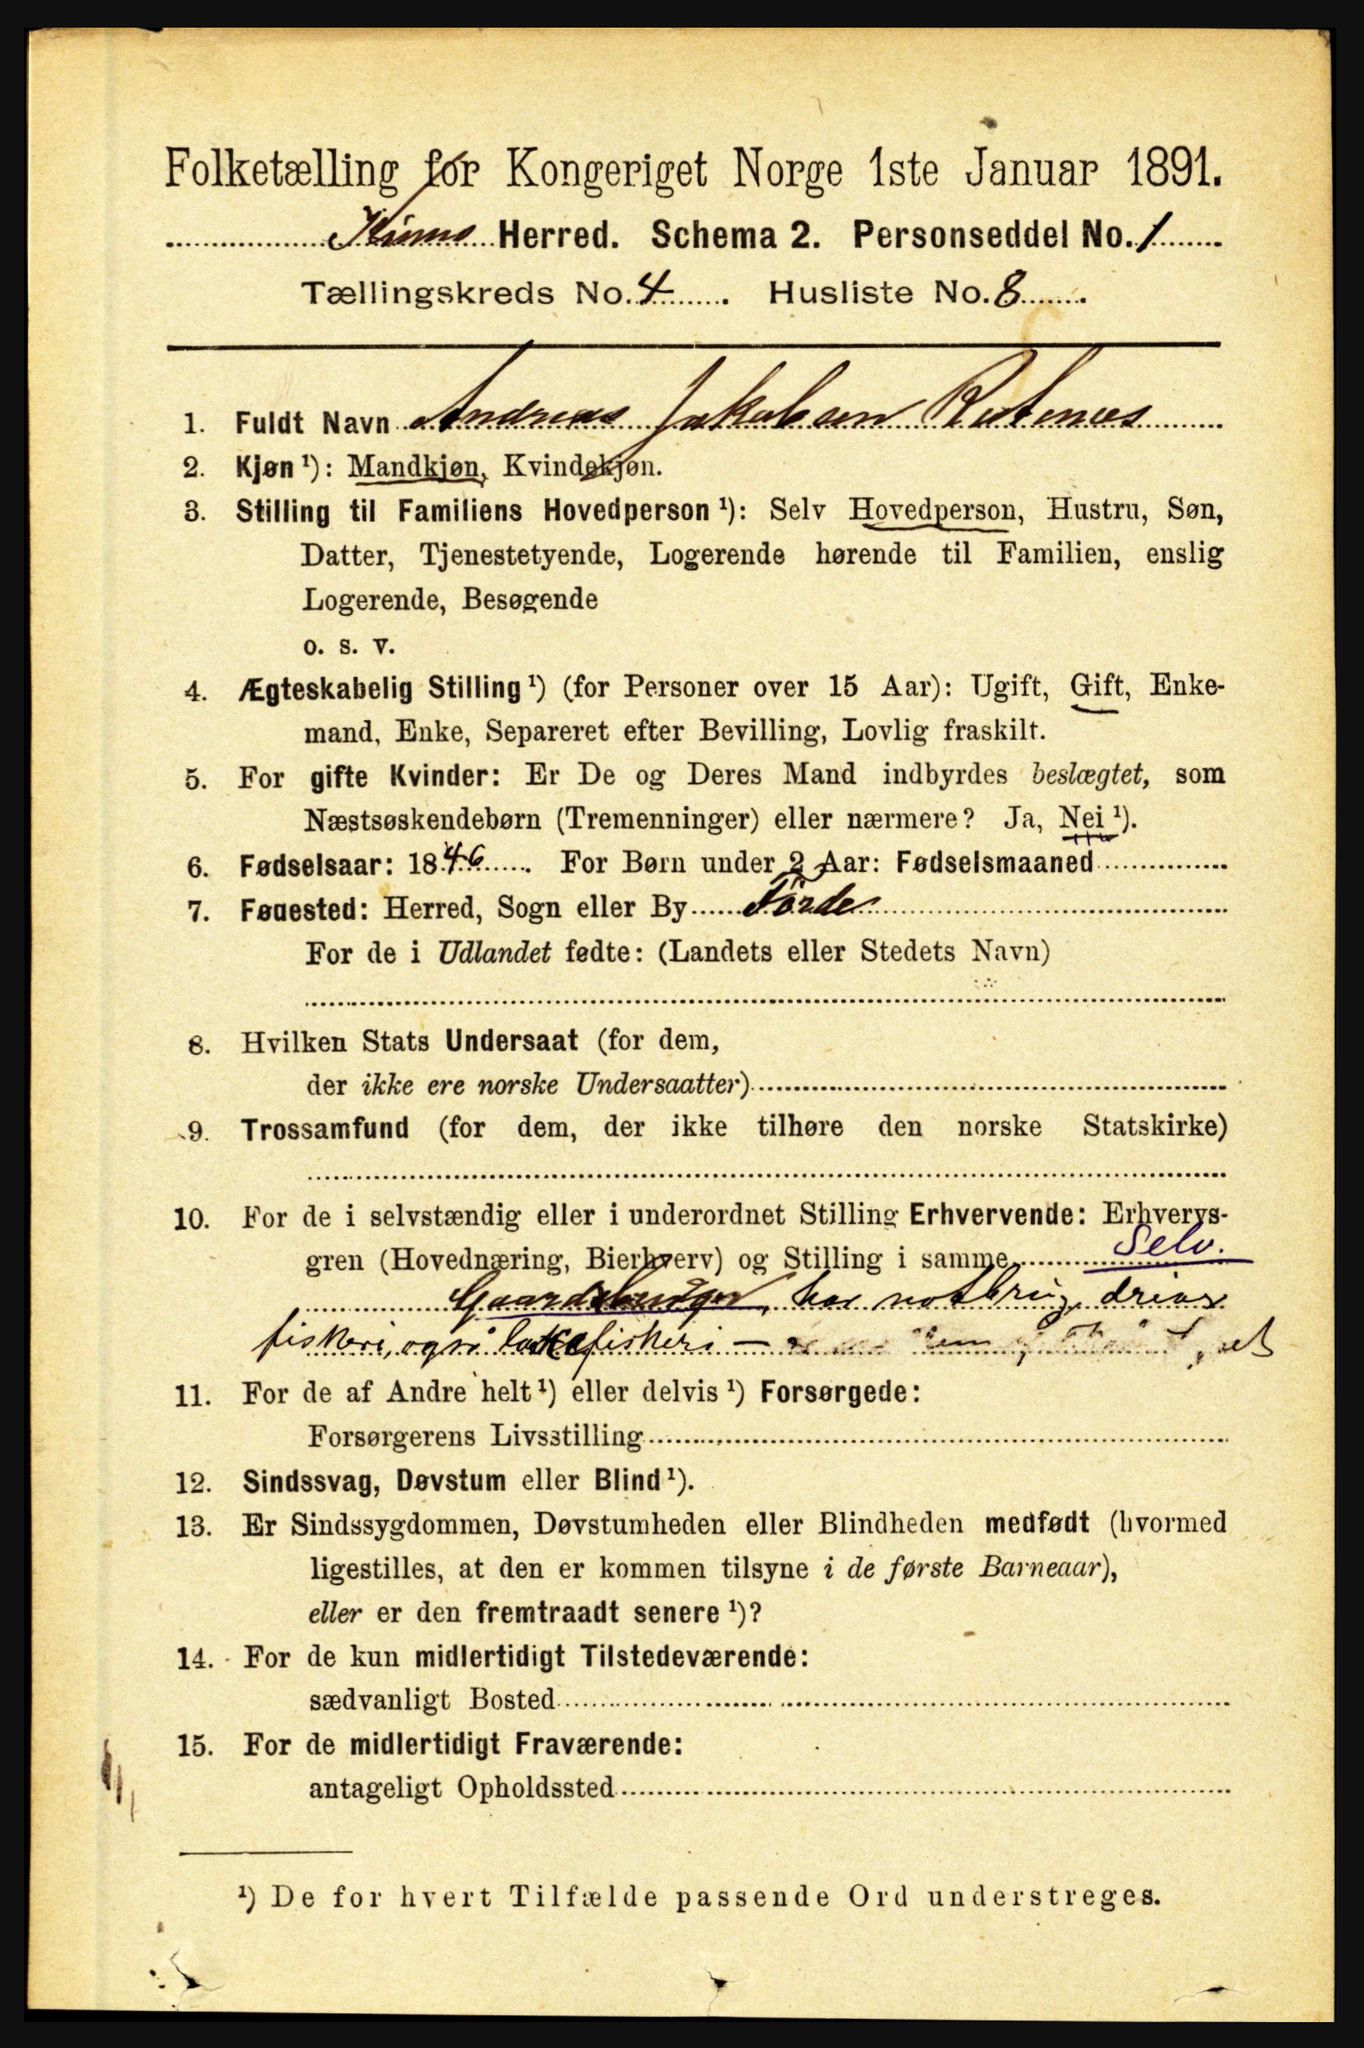 Folketælling for Kongeriget Norge 1ste Januar 1891.
Kinns Herred. Schema 2. Personseddel No. 1
Tællingskreds No. 4. Husliste No. 8.
1. Fuldt Navn Andreas Jakobsen
2. Kjøn ¹): Mandkjøn, Kvindekjøn.
3. Stilling til Familiens Hovedperson ¹): Selv Hovedperson, Hustru, Søn,
Datter, Tjenestetyende, Logerende hørende til Familien, enslig
Logerende, Besøgende
o. s. v.
4. Ægteskabelig Stilling ¹) (for Personer over 15 Aar): Ugift, Gift, Enke-
mand, Enke, Separeret efter Bevilling, Lovlig fraskilt.
5. For gifte Kvinder: Er De og Deres Mand indbyrdes beslægtet, som
Næstsøskendebørn (Tremenninger) eller nærmere? Ja, Nei ¹).
6. Fødselsaar: 1846. For Børn under 2 Aar: Fødselsmaaned
7. Fødested: Herred, Sogn eller By Förde
For de i Udlandet fødte: (Landets eller Stedets Navn)
8. Hvilken Stats Undersaat (for dem,
der ikke ere norske Undersaatter)
9. Trossamfund (for dem, der ikke tilhøre den norske Statskirke)
10. For de i selvstændig eller i underordnet Stilling Erhvervende: Erhvervs-
gren (Hovednæring, Bierhverv) og Stilling i samme Selv.
Gaardsbruger, har notbrug, driver
fiskeri, også laksefiskeri —
11. For de af Andre helt ¹) eller delvis ¹) Forsørgede:
Forsørgerens Livsstilling
12. Sindssvag, Døvstum eller Blind ¹).
13. Er Sindssygdommen, Døvstumheden eller Blindheden medfødt (hvormed
ligestilles, at den er kommen tilsyne i de første Barneaar),
eller er den fremtraadt senere ¹)?
14. For de kun midlertidigt Tilstedeværende:
sædvanligt Bosted
15. For de midlertidigt Fraværende:
antageligt Opholdssted
¹) De for hvert Tilfælde passende Ord understreges.